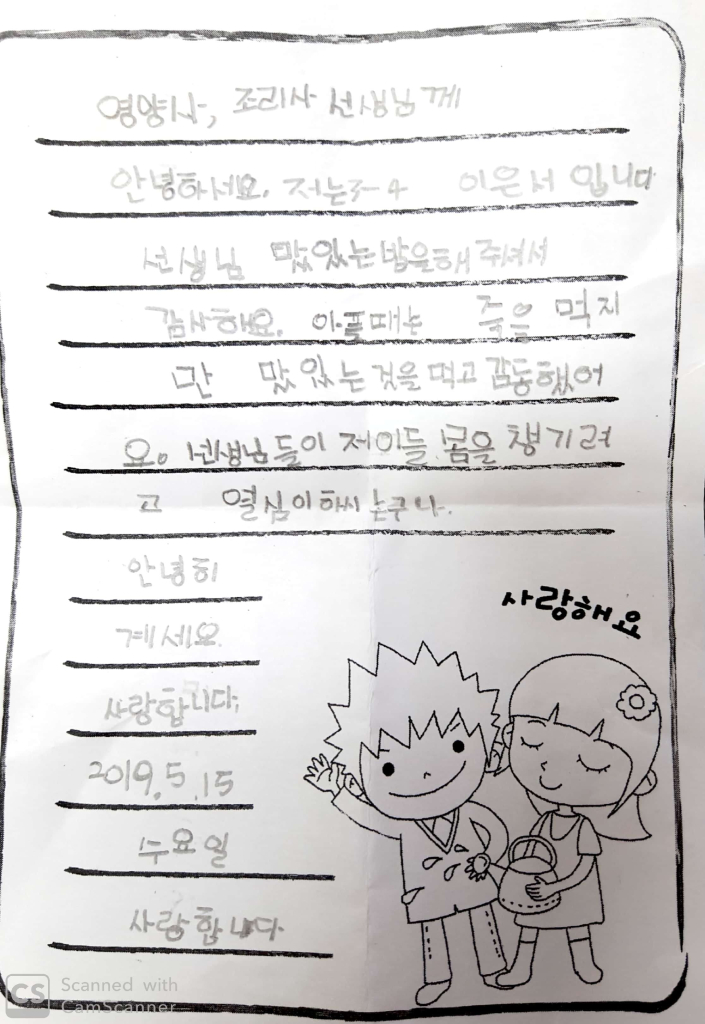 영양사, 조리사 선생님께
안녕하세요. 저는 3-4 이은서 입니다
선생님 맜있는 밥을 해 주셔서
감사해요. 아플때는 죽을 먹지
만 맜있는 것을 먹고 감동했어
요. 선생님들이 저이들 몸을 챙기려
고 열심이 하시는구나.
안녕히
계세요
사랑합니다,
2019.5.15
수요일
사랑합니다
사랑해요
CS Scanned with
CamScanner